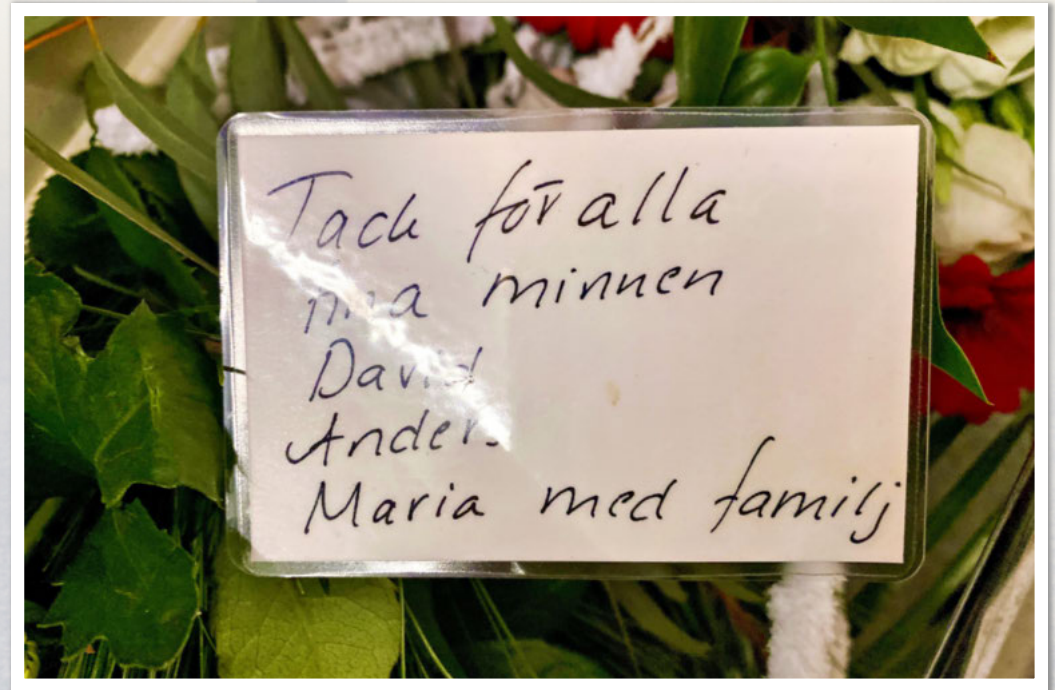 Tack för alla
fina minnen
David
Anders
Maria med familj